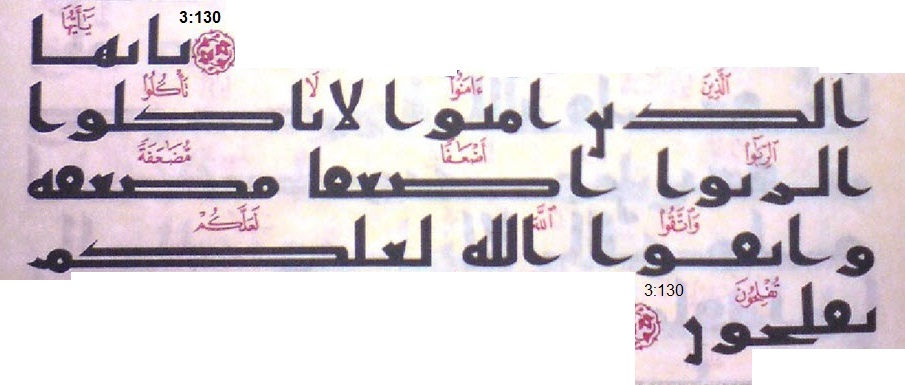 يَٰٓأَيُّهَا 3:130
يايها
ٱلَّذِينَ ءَامَنُوا۟ لَا تَأْكُلُوا۟
الذين امنوا لا تاكلوا
ٱلرِّبَوٰٓا۟ أَضْعَٰفًا مُّضَٰعَفَةً
الربوا اضعفا مضعفه
وَٱتَّقُوا۟ ٱللَّهَ لَعَلَّكُمْ
واتقوا الله لعلكم
تُفْلِحُونَ 3:130
تفلحون